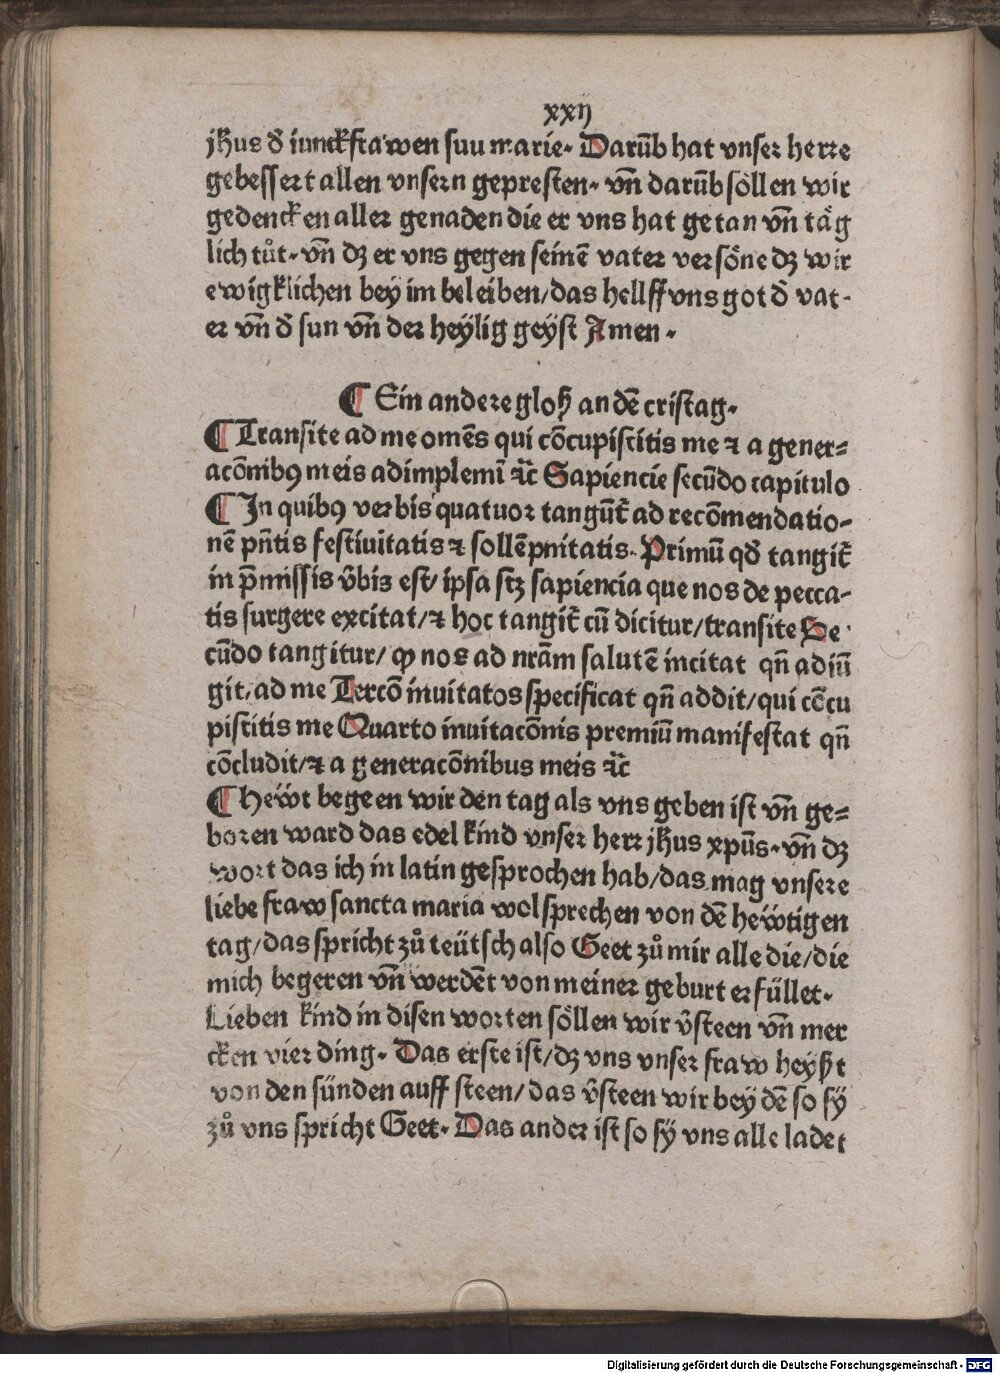 xxij
jhus đ iunckfrawen suu marie. Darūb hat vnser herre
gebessert allen vnsern gepresten. vn̄ darūb söllen wir
gedencken aller genaden die er vns hat getan vn̄ täg
lich tůt. vn̄ dz er vns gegen seinē vater versöne dz wir
ewigklichen bey im beleiben/das hellff vns got đ vat-
er vn̄ đ sun vn̄ der heÿlig geÿst Amen.
¶ Ein andere gloß an dē cristag.
¶ Transite ad me omēs qui cōcupiscitis me ⁊ a gener=
acōnibꝰ meis adimplemī ⁊c̄ Sapiencie secūdo capitulo
¶ In quibꝰ verbis quatuor tangūt̄ ad recōmendatio-
nē pn̄tis festiuitatis ⁊ sollēpnitatis. Primū qđ tangit̄
in p̄missis v̄bis est/ ipsa scz sapiencia que nos de pecca-
tis surgere excitat/⁊ hoc tangit̄ cū dicitur/transite Se
cūdo tangitur/ ꝙ nos ad nrām salutē incitat qn̄ adiū
git/ad me Tercō inuitatos specificat qn̄ addit/qui cēcu
piscitis me Quarto inuitacōnis premiū manifestat qn̄
cōcludit/⁊ a generacōnibus meis ⁊c̄
¶ Heẅt begeen wir den tag als vns geben ist vn̄ ge=
boren ward das edel kind vnser herr jhus xpūs. vn̄ dz
wort das ich in latin gesprochen hab/das mag vnsere
liebe fraw sancta maria wol sprechen von dē heẅtigen
tag/das spricht zů teütsch also Geet zů mir alle die/die
mich begeren vn̄ werdēt von meiner geburt erfüllet.
Lieben kind in disen worten söllen wir v̄steen vn̄ mer
cken vier ding. Das erste ist/dz vns vnser fraw heÿßt
von den sünden auff steen/das v̄steen wir bey dē so sÿ
zů vns spricht Geet. Das ander ist so sÿ vns alle ladet
Digitalisierung gefördert durch die Deutsche Forschungsgemeinschaft - DFG